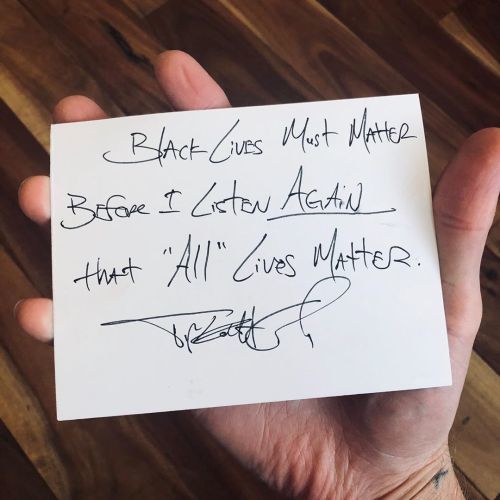 Black Lives Must Matter
Before I Listen Again
that "All" Lives Matter.